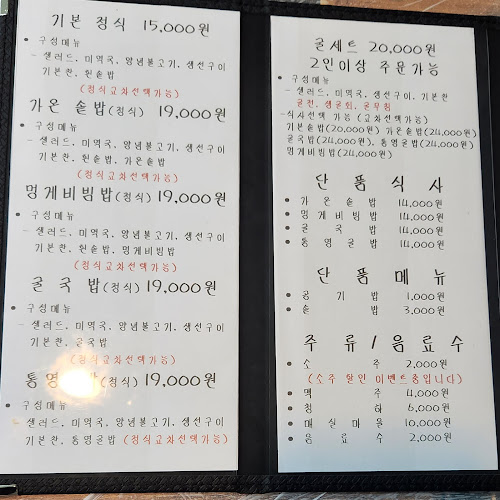 기본 정식 15,000원
• 구성메뉴
- 샐러드, 미역국, 양념불고기, 생선구이
기본찬, 흰솥밥
(정식교차선택가능)
가온 솥밥(정식) 19,000원
• 구성메뉴
- 샐러드, 미역국, 양념불고기, 생선구이
기본찬, 흰솥밥, 가온솥밥
(정식교차선택가능)
멍게비빔밥(정식)19,000원
• 구성메뉴
- 샐러드, 미역국, 양념불고기, 생선구이
기본찬, 흰솥밥, 멍게비빔밥
(정식교차선택가능)
굴국밥(정식) 19,000원
• 구성메뉴
- 샐러드, 미역국, 양념불고기, 생선구이
기본찬, 굴국밥
(정식교차선택가능)
통영 (정식) 19,000원
• 구성메뉴
- 샐러드, 미역국, 양념불고기, 생선구이
기본찬, 통영굴밥 (정식교차선택가능)
굴세트 20,000원
2인이상 주문가능
• 구성메뉴
- 샐러드, 미역국, 생선구이, 기본찬
굴전, 생굴회, 굴무침
-식사선택 가능 (교차선택가능)
기본솥밥(20,000원) 가온솥밥(24,000원)
굴국밥(24,000원), 통영굴밥(24,000원)
멍게비빔밥(24,000원)
단품식사
• 가온솥밥 14,000원
• 멍게비빔밥 14,000원
• 굴국밥 14,000원
• 통영굴밥 14,000원
단품메뉴
• 공기밥 1,000원
• 솥밥 3,000원
주류/음료수
• 소주 2,000원
(소주 할인 이벤트중입니다)
• 맥주 4,000원
• 청하 6,000원
• 매실마을 10,000원
• 음료수 2,000원